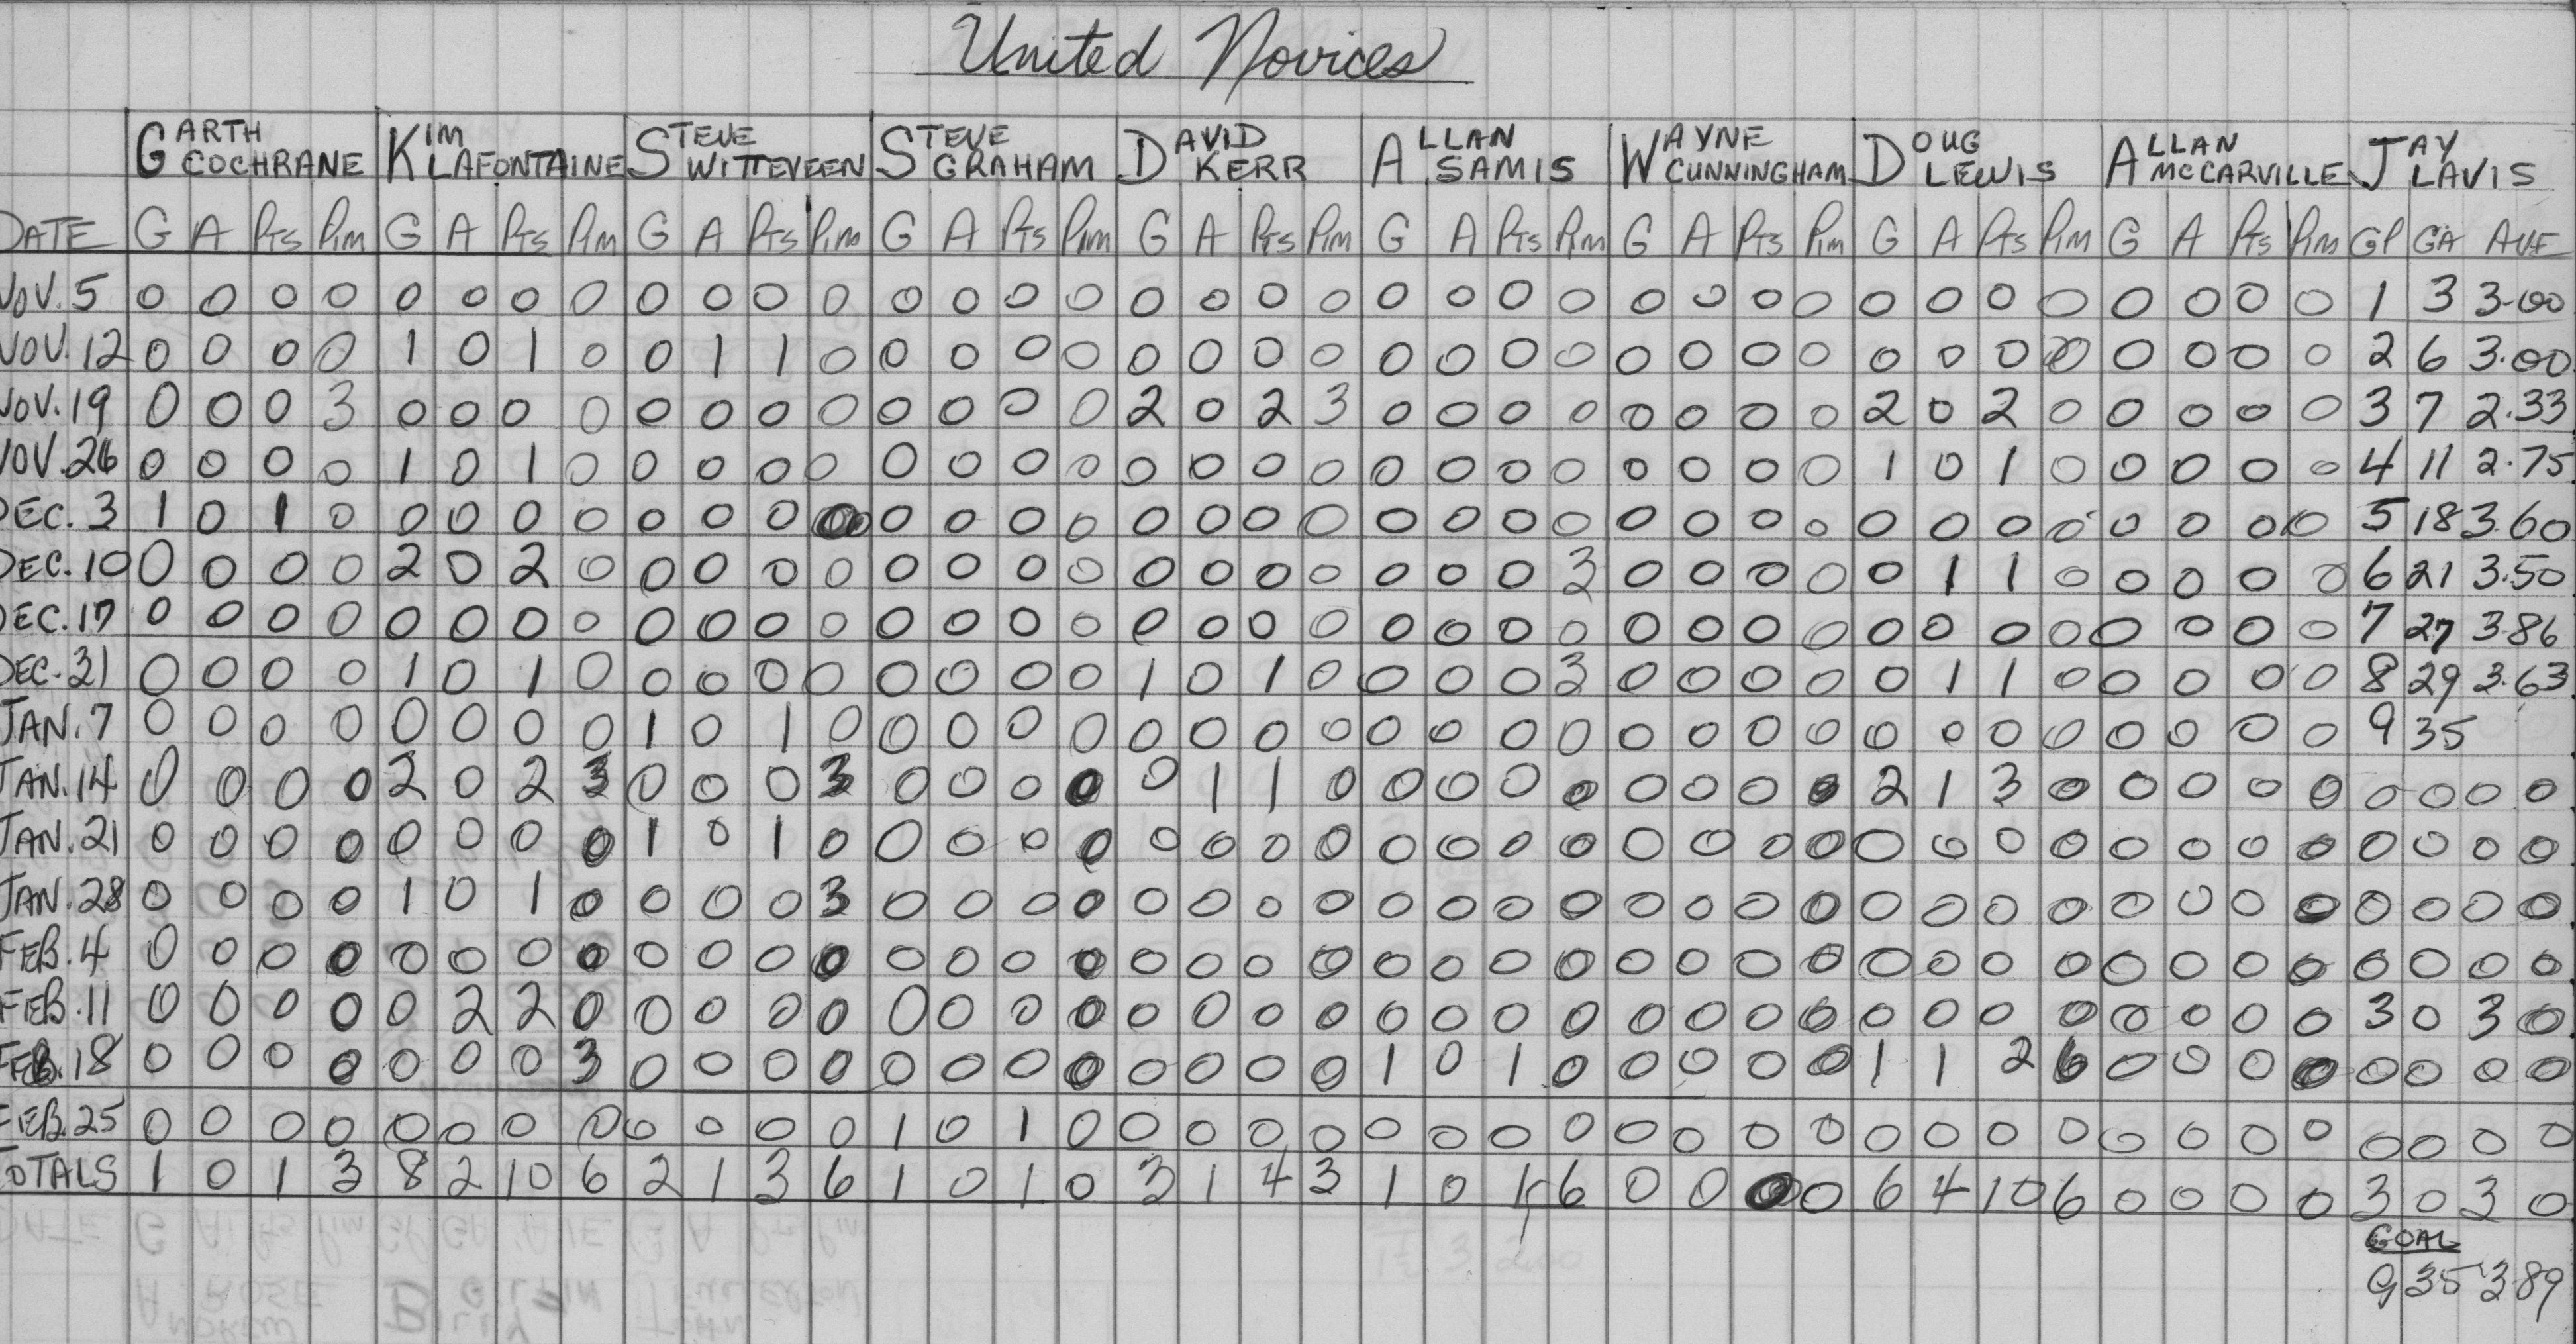 United Novices
GARTH COCHRANE KIM LAFONTAINE STEVE WITTEVEEN STEVE GRAHAM DAVID KERR ALLAN SAMIS WAYNE CUNNINGHAM DOUG LEWIS ALLAN MCCARVILLE JAY LAVIS
DATE G A PTS PIM G A PTS PIM G A PTS PIM G A PTS PIM G A PTS PIM G A PTS PIM G A PTS PIM G A PTS PIM G A PTS PIM GP GA AVE
NOV. 5 0 0 0 0 0 0 0 0 0 0 0 0 0 0 0 0 0 0 0 0 0 0 0 0 0 0 0 0 0 0 0 0 0 0 0 0 1 3 3.00
NOV. 12 0 0 0 0 1 0 1 0 0 1 1 0 0 0 0 0 0 0 0 0 0 0 0 0 0 0 0 0 0 0 0 0 0 0 0 0 2 6 3.00
NOV. 19 0 0 0 3 0 0 0 0 0 0 0 0 0 0 0 0 2 0 2 3 0 0 0 0 0 0 0 0 2 0 2 0 0 0 0 0 3 7 2.33
NOV. 26 0 0 0 0 1 0 1 0 0 0 0 0 0 0 0 0 0 0 0 0 0 0 0 0 0 0 0 0 1 0 1 0 0 0 0 0 4 11 2.75
DEC. 3 1 0 1 0 0 0 0 0 0 0 0 0 0 0 0 0 0 0 0 0 0 0 0 0 0 0 0 0 0 0 0 0 0 0 0 0 5 18 3.60
DEC. 10 0 0 0 0 2 0 2 0 0 0 0 0 0 0 0 0 0 0 0 0 0 0 0 3 0 0 0 0 0 1 1 0 0 0 0 0 6 21 3.50
DEC. 17 0 0 0 0 0 0 0 0 0 0 0 0 0 0 0 0 0 0 0 0 0 0 0 0 0 0 0 0 0 0 0 0 0 0 0 0 7 27 3.86
DEC. 31 0 0 0 0 1 0 1 0 0 0 0 0 0 0 0 0 1 0 1 0 0 0 0 3 0 0 0 0 0 1 1 0 0 0 0 0 8 29 3.63
JAN. 7 0 0 0 0 0 0 0 0 1 0 1 0 0 0 0 0 0 0 0 0 0 0 0 0 0 0 0 0 0 0 0 0 0 0 0 0 9 35
JAN. 14 0 0 0 0 2 0 2 3 0 0 0 3 0 0 0 0 0 1 1 0 0 0 0 0 0 0 0 0 2 1 3 0 0 0 0 0 0 0 0 0
JAN. 21 0 0 0 0 0 0 0 0 1 0 1 0 0 0 0 0 0 0 0 0 0 0 0 0 0 0 0 0 0 0 0 0 0 0 0 0 0 0 0 0
JAN. 28 0 0 0 0 1 0 1 0 0 0 0 3 0 0 0 0 0 0 0 0 0 0 0 0 0 0 0 0 0 0 0 0 0 0 0 0 0 0 0 0
FEB. 4 0 0 0 0 0 0 0 0 0 0 0 0 0 0 0 0 0 0 0 0 0 0 0 0 0 0 0 0 0 0 0 0 0 0 0 0 0 0 0 0
FEB. 11 0 0 0 0 0 2 2 0 0 0 0 0 0 0 0 0 0 0 0 0 0 0 0 0 0 0 0 0 0 0 0 0 0 0 0 0 3 0 3 0
FEB. 18 0 0 0 0 0 0 0 3 0 0 0 0 0 0 0 0 0 0 0 0 1 0 1 0 0 0 0 0 1 1 2 6 0 0 0 0 0 0 0 0
FEB. 25 0 0 0 0 0 0 0 0 0 0 0 0 1 0 1 0 0 0 0 0 0 0 0 0 0 0 0 0 0 0 0 0 0 0 0 0 0 0 0 0
TOTALS 1 0 1 3 8 2 10 6 2 1 3 6 1 0 1 0 3 1 4 3 1 0 1 6 0 0 0 0 6 4 10 6 0 0 0 0 3 0 3 0
GOAL
9 35 3.89